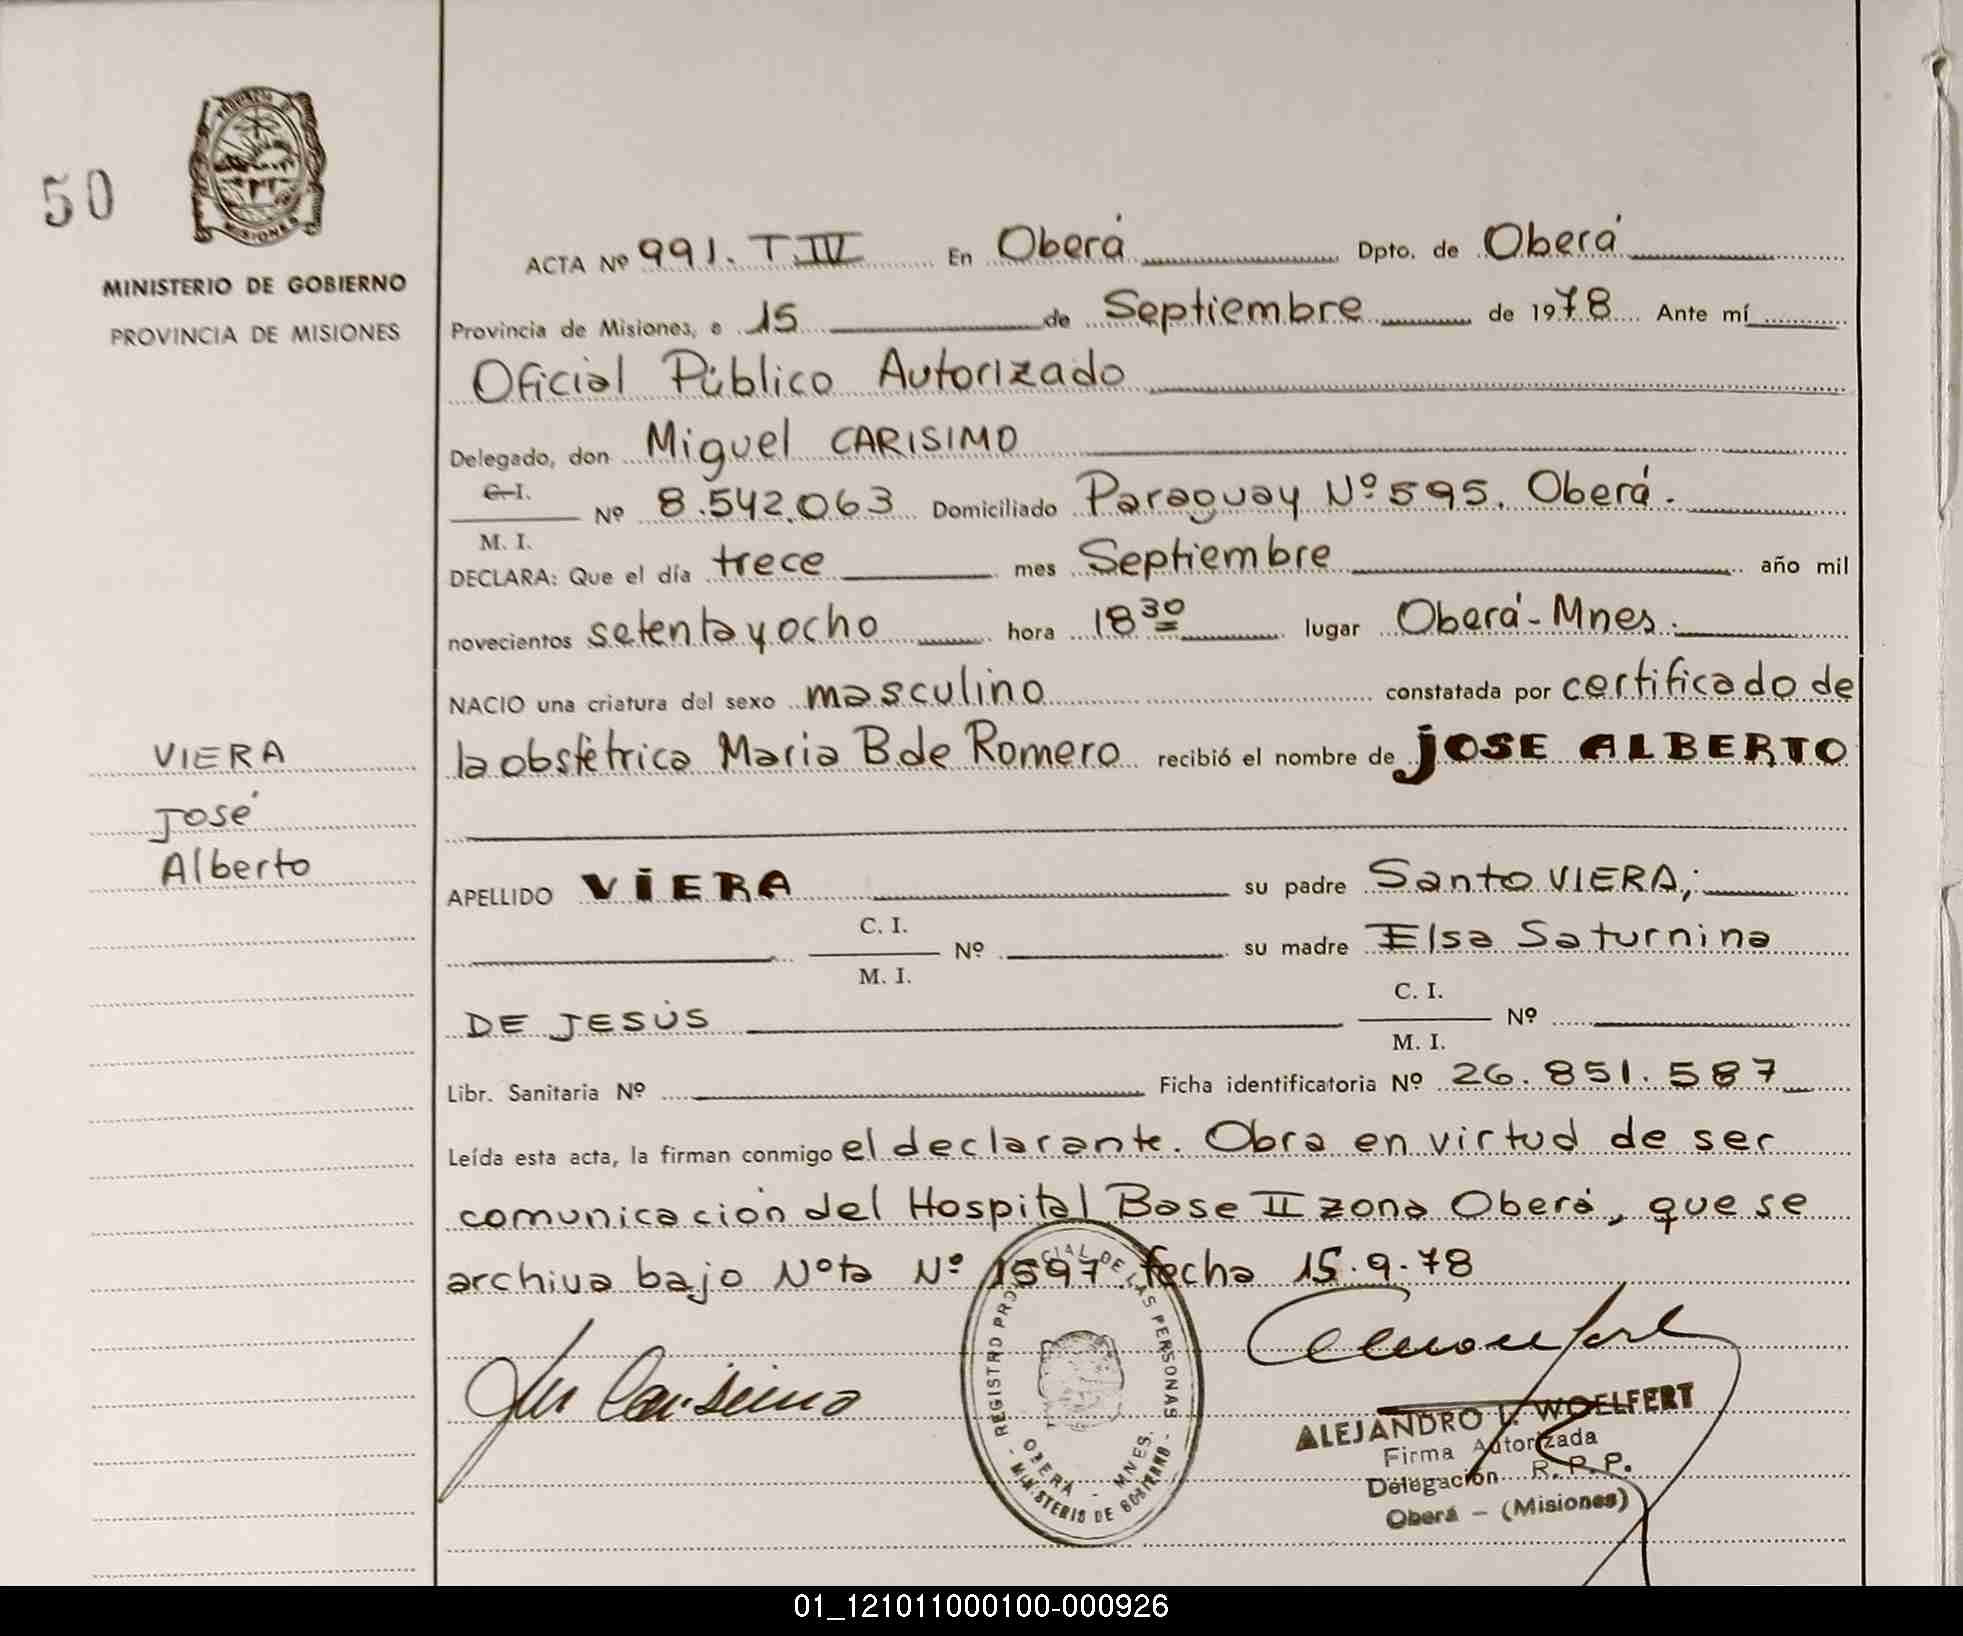 50
PROVINCIA DE MISIONES
MINISTERIO DE GOBIERNO
PROVINCIA DE MISIONES
ACTA Nº 991. T.IV En Oberá Dpto. de Oberá
Provincia de Misiones, a 15 de Septiembre de 1978 Ante mí
Oficial Público Autorizado
Delegado, don Miguel CARISIMO
C. I.
Nº 8.542.063 Domiciliado Paraguay Nº 595. Oberá.
M. I.
DECLARA: Que el día trece mes Septiembre año mil
novecientos setenta y ocho hora 18 30 lugar Oberá - Mnes.
NACIO una criatura del sexo masculino constatada por certificado de
la obstétrica Maria B. de Romero recibió el nombre de JOSE ALBERTO
VIERA
José
Alberto
APELLIDO VIERA su padre Santo VIERA;
C. I.
Nº su madre Elsa Saturnina
M. I.
DE JESÚS
C. I.
Nº
M. I.
Libr. Sanitaria Nº Ficha identificatoria Nº 26.851.587
Leída esta acta, la firman conmigo el declarante. Obra en virtud de ser
comunicación del Hospital Base II zona Oberá, que se
archiva bajo Nota Nº 1597 fecha 15.9.78
Carisimo
REGISTRO PROVINCIAL DE LAS PERSONAS
OBERA - MNES.
MINISTERIO DE GOBIERNO
ALEJANDRO WOELFERT
Firma Autorizada
Delegación R. P. P.
Oberá - (Misiones)
01_121011000100-000926